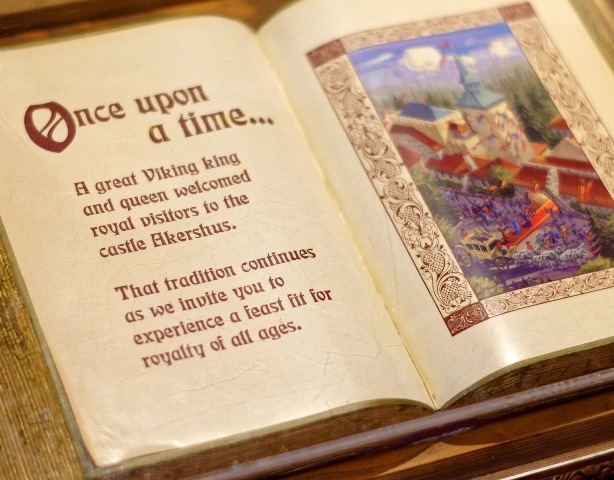 Once upon
a time...
A great Viking king
and queen welcomed
royal visitors to the
castle Akershus.
That tradition continues
as we invite you to
experience a feast fit for
royalty of all ages.